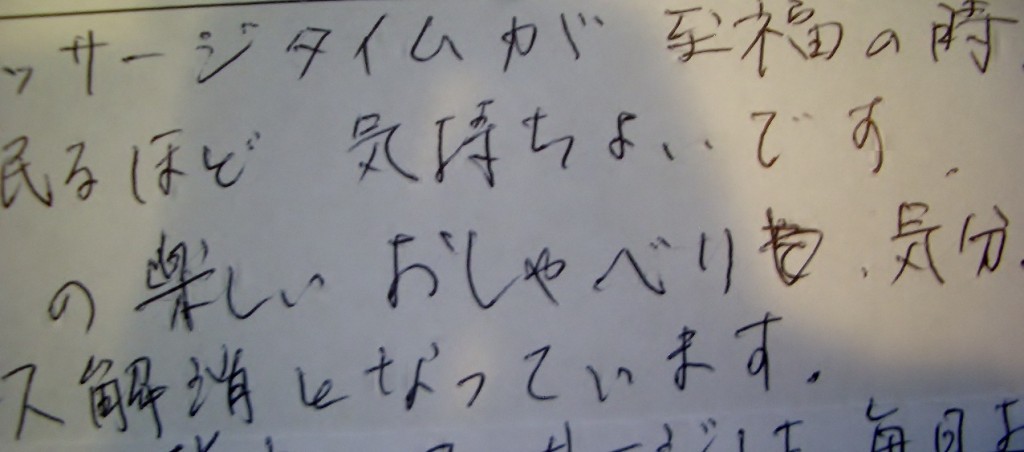 ッサージタイムが 至福の時
眠るほど 気持ちよいです.
の楽しい おしゃべりも、気分
ス解消となっています.
サージは 毎日